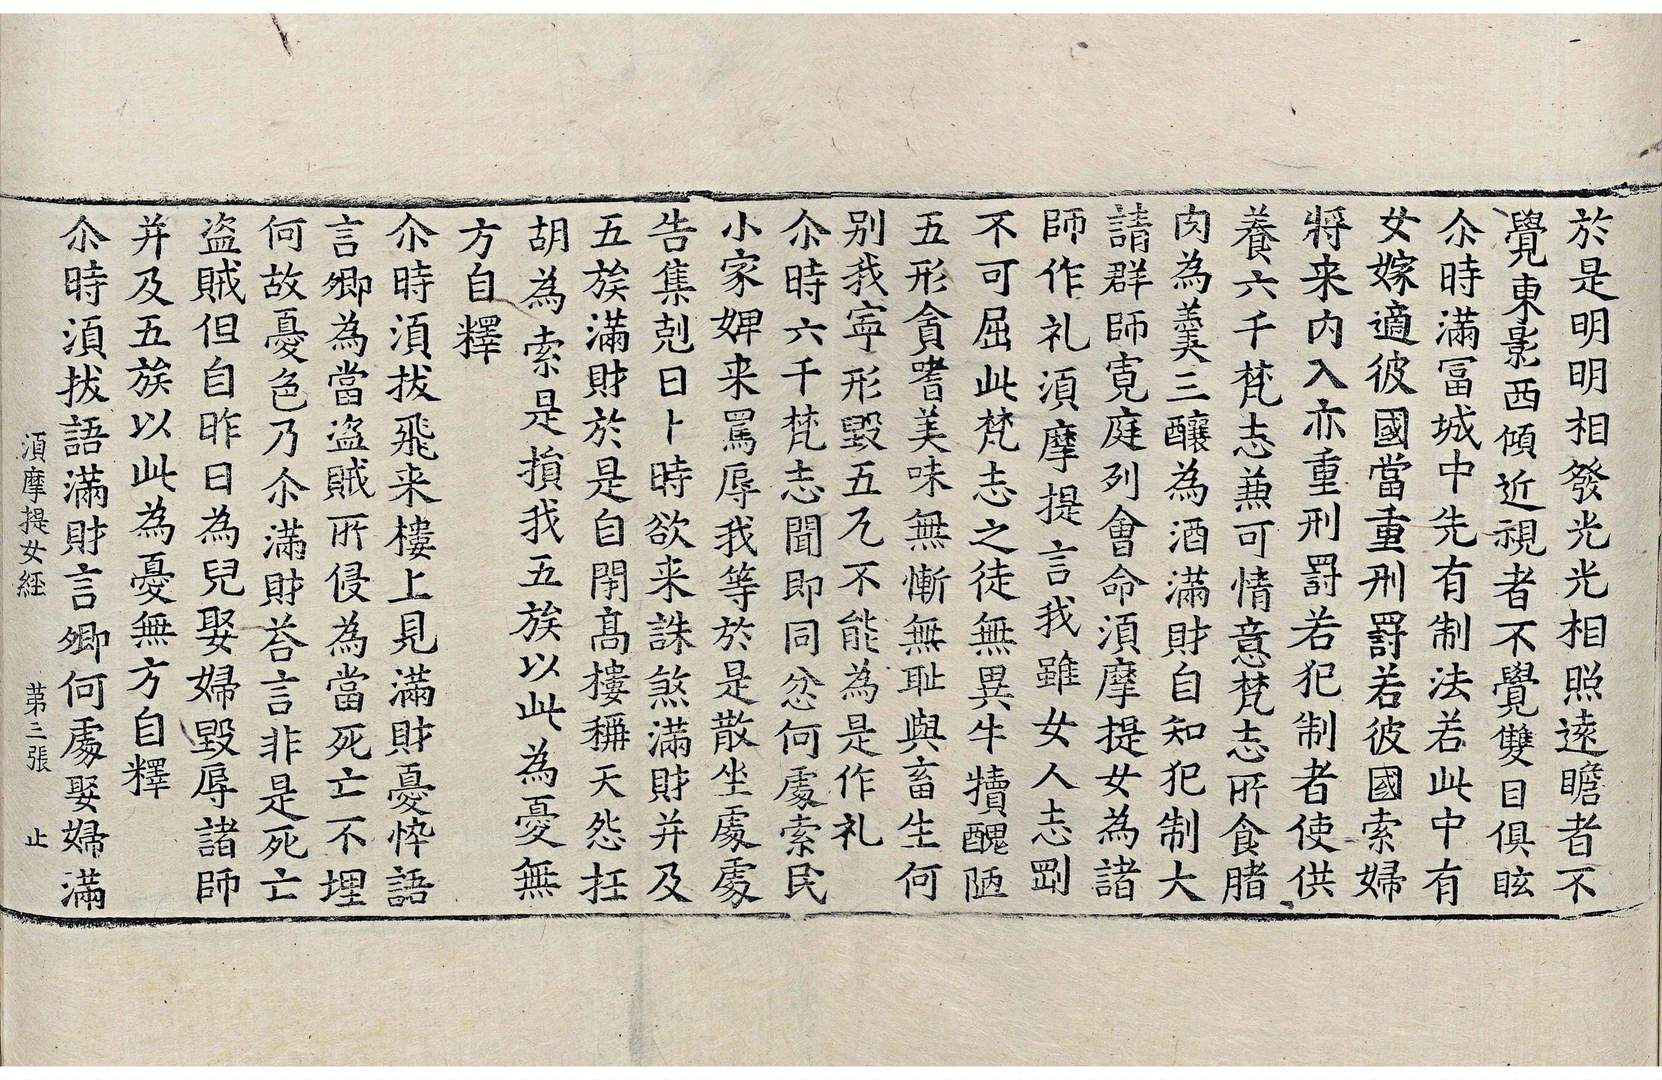 於是明明相發光光相照遠瞻者不
覺東影西傾近視者不覺雙目俱眩
尒時滿冨城中先有制法若此中有
女嫁適彼國當重刑罸若彼國索婦
將来内入亦重刑罸若犯制者使供
養六千梵志兼可情意梵志所食腤
肉為羹三釀為酒滿財自知犯制大
請群師寛庭列會命湏摩提女為諸
師作礼湏摩提言我雖女人志剛
不可屈此梵志之徒無異牛犢醜陋
五形貪嗜美味無慚無耻與畜生何
别我寧形毀五兀不能為是作礼
尒時六千梵志聞即同忿何處索民
小家婢来罵辱我等於是散坐處處
告集剋日卜時欲来誅煞滿財并及
五族滿財於是自閇髙樓稱天怨抂
胡為索是損我五族以此為憂無
方自釋
尒時湏拔飛来樓上見滿財憂悴語
言卿為當盗賊所侵為當死亡不埋
何故憂色乃尒滿財荅言非是死亡
盗賊但自昨日為兒娶婦毀辱諸師
并及五族以此為憂無方自釋
尒時湏拔語滿財言卿何處娶婦滿
湏摩提女経 第三張 止